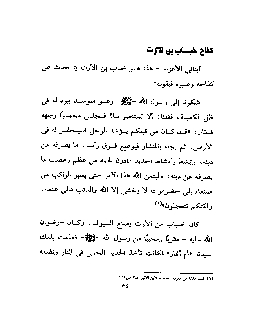 كفاح خباب بن الأرت
أبنائي الأعزاء - هذا هو خباب بن الأرت يتحدث عن
كفاحه وصبره فيقول:
شكونا إلى رسول الله - ﷺ - وهو متوسد بردة له في
ظل الكعبة، فقلنا: ألا تستنصر لنا؟ فجلس محمرًا وجهه
فقال: «قد كان من قبلكم يؤخذ الرجل فيحفر له في
الأرض، ثم يجاء بالمنشار فيوضع فوق رأسه، ما يصرفه عن
دينه، ويمشط بأمشاط الحديد ما دون لحمه من عظم وعصب ما
يصرفه عن دينه، وليتمن الله هذا الأمر حتى يسير الراكب من
صنعاء إلى حضرموت لا يخشى إلا الله والذئب على غنمه،
ولكنكم تستعجلون»
كان خباب بن الأرت يصنع السيوف، وكان - رضوان
الله عليه - رسول الله - ﷺ - فعلمت بذلك
سيدته أم أنمار، فكانت تأخذ الحديد المحمى في النار وتضعه